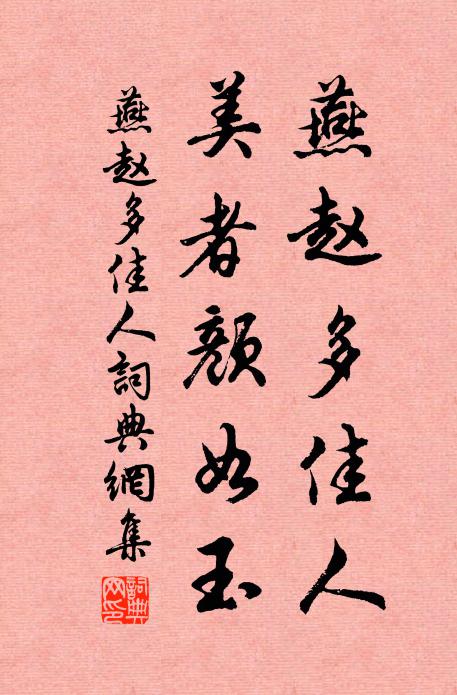 燕赵多佳人
美者颜如玉
燕赵多佳人詞典網集
詞典
网印